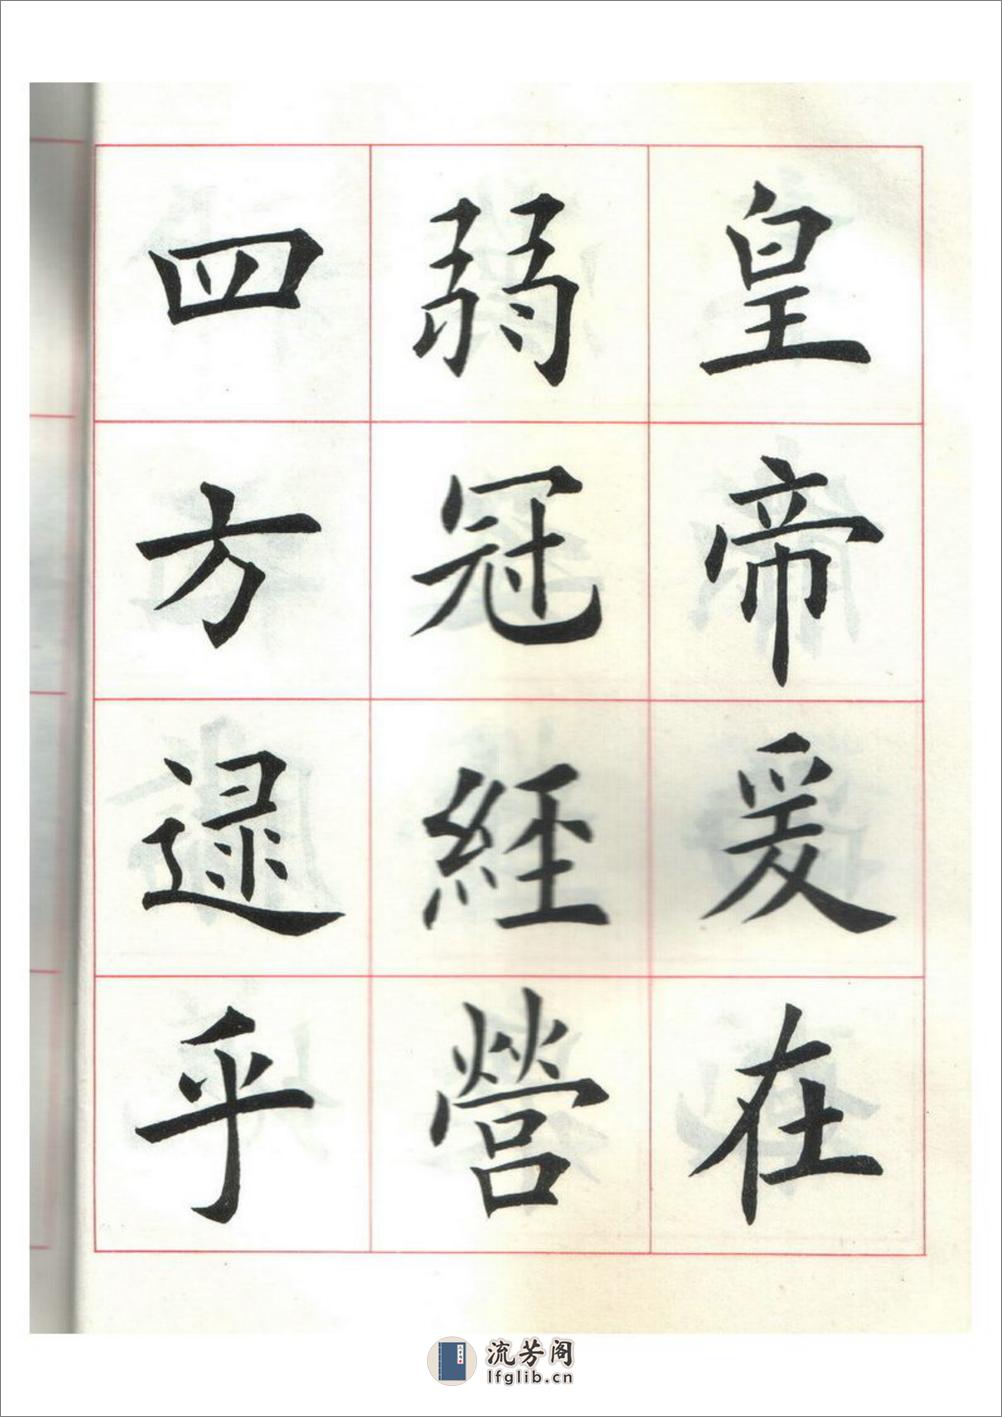 皇帝爰在
弱冠經營
四方逯乎
流芳阁
lfglib.cn